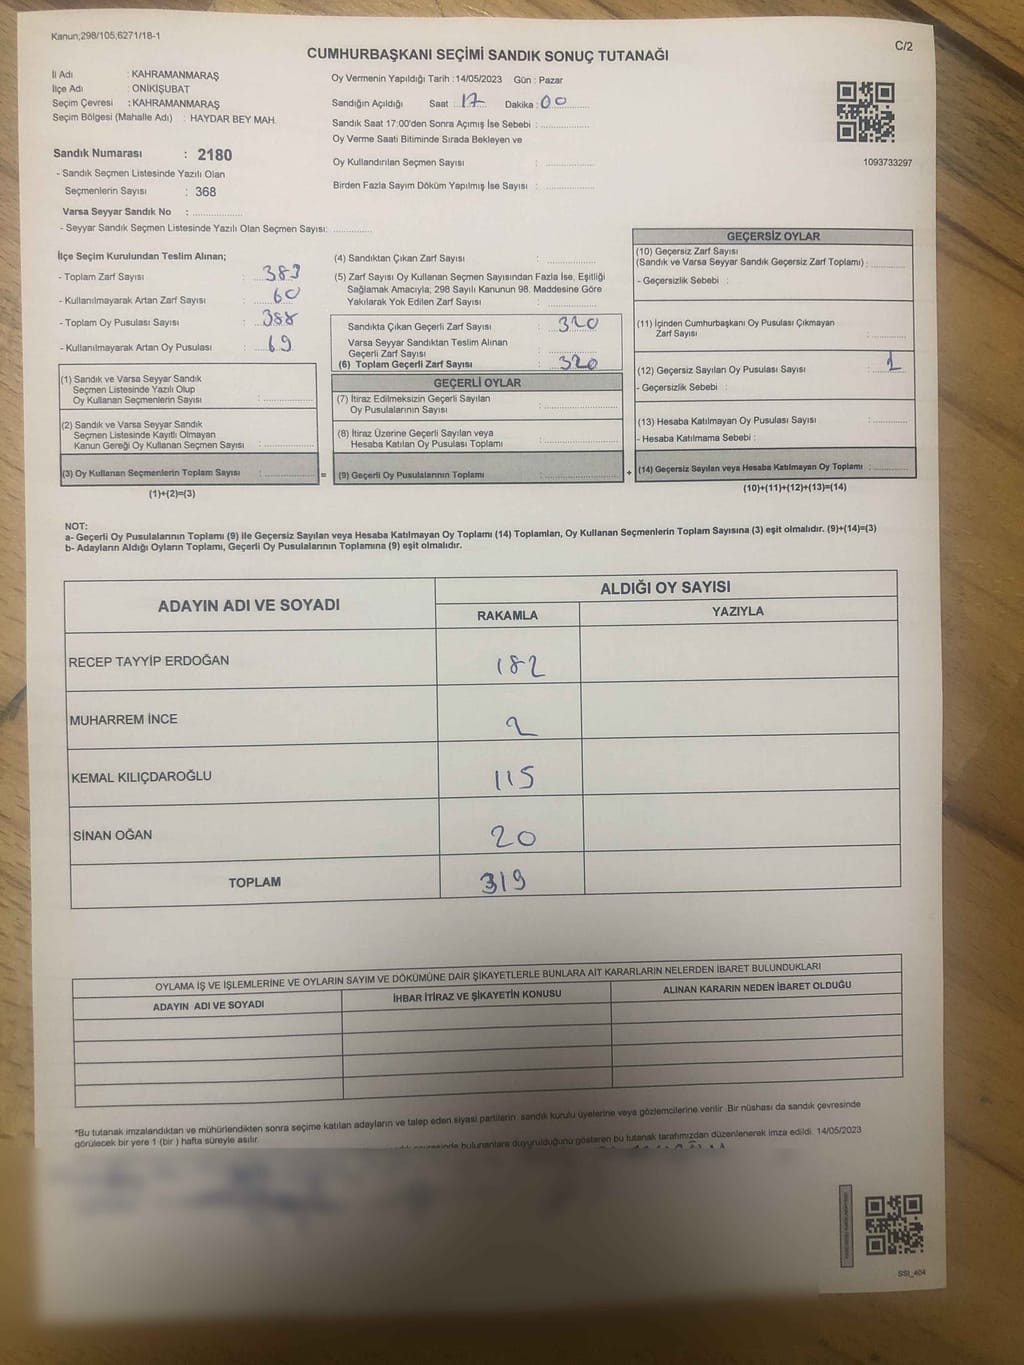 Kanun;298/105;6271/18-1
C/2
CUMHURBAŞKANI SEÇİMİ SANDIK SONUÇ TUTANAĞI
İl Adı : KAHRAMANMARAŞ
İlçe Adı : ONİKİŞUBAT
Seçim Çevresi : KAHRAMANMARAŞ
Seçim Bölgesi (Mahalle Adı) : HAYDAR BEY MAH.
Sandık Numarası : 2180
- Sandık Seçmen Listesinde Yazılı Olan
Seçmenlerin Sayısı : 368
Varsa Seyyar Sandık No : ..................
- Seyyar Sandık Seçmen Listesinde Yazılı Olan Seçmen Sayısı: .............
Oy Vermenin Yapıldığı Tarih :14/05/2023 Gün : Pazar
Sandığın Açıldığı Saat : 17 Dakika : 00
Sandık Saat 17:00'den Sonra Açımış İse Sebebi : .................
Oy Verme Saati Bitiminde Sırada Bekleyen ve
Oy Kullandırılan Seçmen Sayısı : .................
Birden Fazla Sayım Döküm Yapılmış İse Sayısı : .................
1093733297
İlçe Seçim Kurulundan Teslim Alınan;
- Toplam Zarf Sayısı : 389
- Kullanılmayarak Artan Zarf Sayısı : 60
- Toplam Oy Pusulası Sayısı : 388
- Kullanılmayarak Artan Oy Pusulası : 69
(1) Sandık ve Varsa Seyyar Sandık
Seçmen Listesinde Yazılı Olup
Oy Kullanan Seçmenlerin Sayısı : .................
(2) Sandık ve Varsa Seyyar Sandık
Seçmen Listesinde Kayıtlı Olmayan
Kanun Gereği Oy Kullanan Seçmen Sayısı : .................
(3) Oy Kullanan Seçmenlerin Toplam Sayısı : .................
(1)+(2)=(3)
(4) Sandıktan Çıkan Zarf Sayısı : .................
(5) Zarf Sayısı Oy Kullanan Seçmen Sayısından Fazla İse, Eşitliği
Sağlamak Amacıyla; 298 Sayılı Kanunun 98. Maddesine Göre
Yakılarak Yok Edilen Zarf Sayısı : .................
Sandıkta Çıkan Geçerli Zarf Sayısı : 320
Varsa Seyyar Sandıktan Teslim Alınan
Geçerli Zarf Sayısı : .................
(6) Toplam Geçerli Zarf Sayısı : 320
GEÇERLİ OYLAR
(7) İtiraz Edilmeksizin Geçerli Sayılan
Oy Pusulalarının Sayısı : .................
(8) İtiraz Üzerine Geçerli Sayılan veya
Hesaba Katılan Oy Pusulası Toplamı : .................
= (9) Geçerli Oy Pusulalarının Toplamı : .................
GEÇERSİZ OYLAR
(10) Geçersiz Zarf Sayısı
(Sandık ve Varsa Seyyar Sandık Geçersiz Zarf Toplamı) : ...........
- Geçersizlik Sebebi :
(11) İçinden Cumhurbaşkanı Oy Pusulası Çıkmayan
Zarf Sayısı : ...........
(12) Geçersiz Sayılan Oy Pusulası Sayısı : 1
- Geçersizlik Sebebi :
(13) Hesaba Katılmayan Oy Pusulası Sayısı : ...........
- Hesaba Katılmama Sebebi :
+ (14) Geçersiz Sayılan veya Hesaba Katılmayan Oy Toplamı : ...........
(10)+(11)+(12)+(13)=(14)
NOT:
a- Geçerli Oy Pusulalarının Toplamı (9) ile Geçersiz Sayılan veya Hesaba Katılmayan Oy Toplamı (14) Toplamları, Oy Kullanan Seçmenlerin Toplam Sayısına (3) eşit olmalıdır. (9)+(14)=(3)
b- Adayların Aldığı Oyların Toplamı, Geçerli Oy Pusulalarının Toplamına (9) eşit olmalıdır.
ADAYIN ADI VE SOYADI
ALDIĞI OY SAYISI
RAKAMLA YAZIYLA
RECEP TAYYİP ERDOĞAN 182
MUHARREM İNCE 2
KEMAL KILIÇDAROĞLU 115
SİNAN OĞAN 20
TOPLAM 319
OYLAMA İŞ VE İŞLEMLERİNE VE OYLARIN SAYIM VE DÖKÜMÜNE DAİR ŞİKAYETLERLE BUNLARA AİT KARARLARIN NELERDEN İBARET BULUNDUKLARI
ADAYIN ADI VE SOYADI İHBAR İTİRAZ VE ŞİKAYETİN KONUSU ALINAN KARARIN NEDEN İBARET OLDUĞU
*Bu tutanak imzalandıktan ve mühürlendikten sonra seçime katılan adayların ve talep eden siyasi partilerin sandık kurulu üyelerine veya gözlemcilerine verilir. Bir nüshası da sandık çevresinde
görülecek bir yere 1 (bir ) hafta süreyle asılır.
bulunanlara duyurulduğunu gösteren bu tutanak tarafımızdan düzenlenerek imza edildi. 14/05/2023
SSI_404